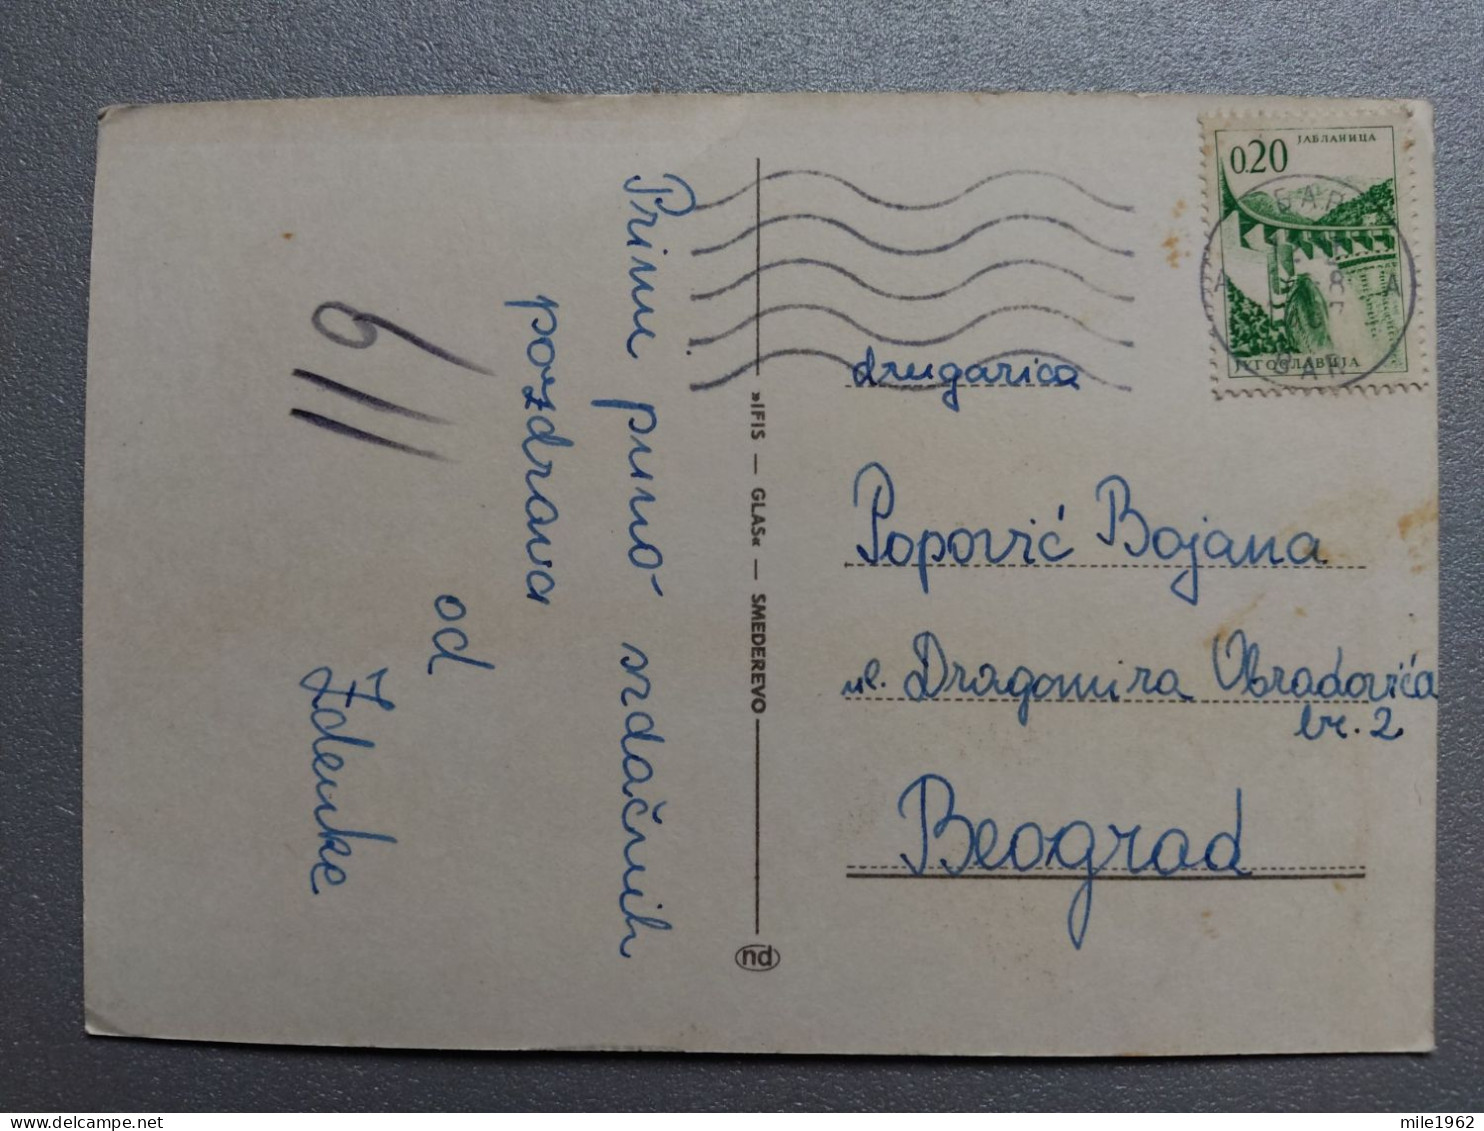 Primi puno srdačnih
pozdrava
od
Zdenke
611
»IFIS — GLAS« — SMEDEREVO
nd
0.20
ЈАБЛАНИЦА
JYГОСЛАВИЈА
БАР
A
8
A
BAR
drugarica
Popović Bojana
ul. Dragomira Obradovića
br. 2
Beograd
mile1962